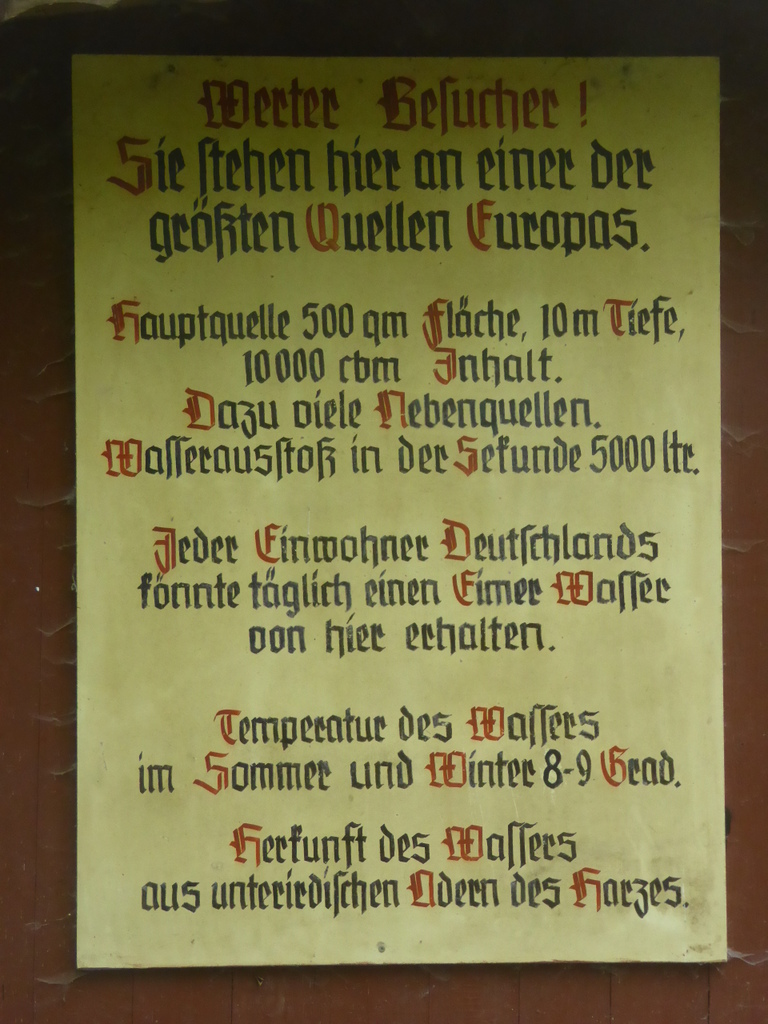 Werter Besucher !
Sie stehen hier an einer der
größten Quellen Europas.
Hauptquelle 500 qm Fläche, 10 m Tiefe,
10000 cbm Inhalt.
Dazu viele Nebenquellen.
Wasserausstoß in der Sekunde 5000 ltr.
Jeder Einwohner Deutschlands
könnte täglich einen Eimer Wasser
von hier erhalten.
Temperatur des Wassers
im Sommer und Winter 8-9 Grad.
Herkunft des Wassers
aus unterirdischen Adern des Harzes.